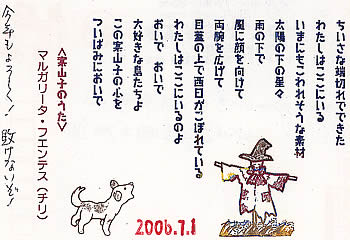 ちいさな端切れでできた
わたしはここにいる
いまにもこわれそうな素材
太陽の下の星々
雨の下で
風に顔を向けて
両腕を広げて
目蓋の上で西日がこぼれている
わたしはここにいるのよ
おいで おいで
大好きな鳥たちよ
この案山子の心を
ついばみにおいで
<案山子のうた>
マルガリータ・フエンテス(チリ)
今年もよろしく! 敗けないぞ!
2006.7.1